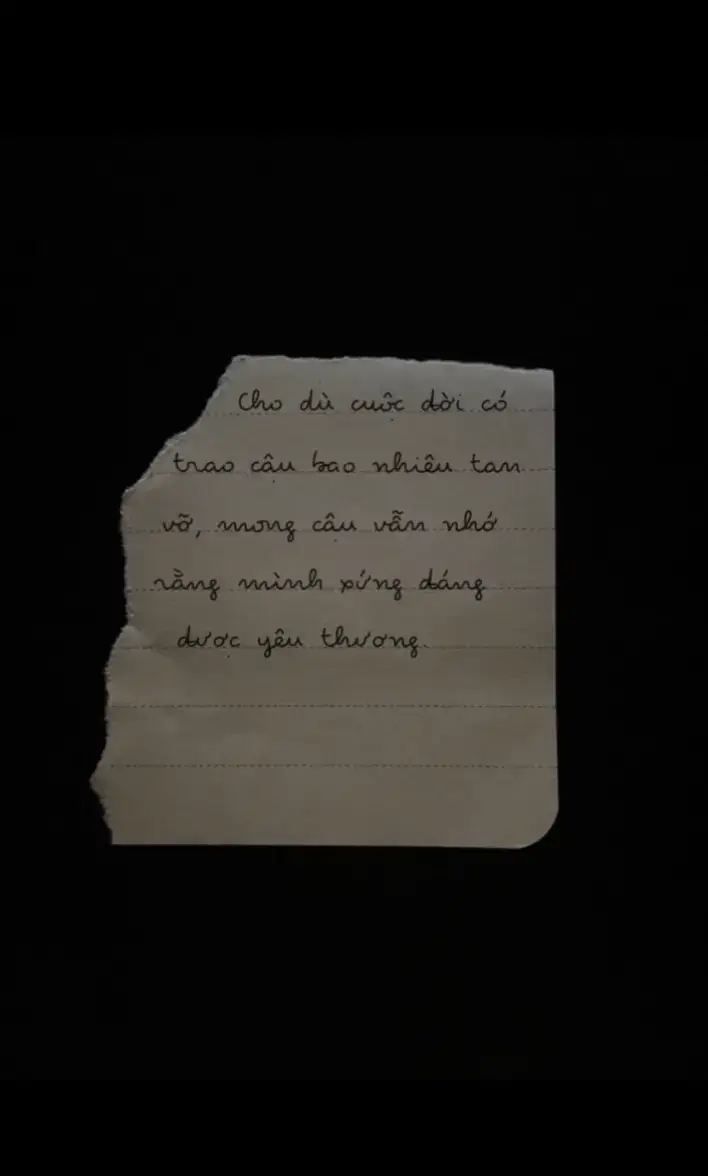 Cho dù cuộc đời có
trao cậu bao nhiêu tan
vỡ, mong cậu vẫn nhớ
rằng mình xứng đáng
được yêu thương.